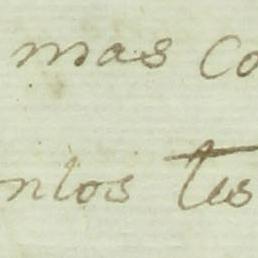 mas co
ntos tes